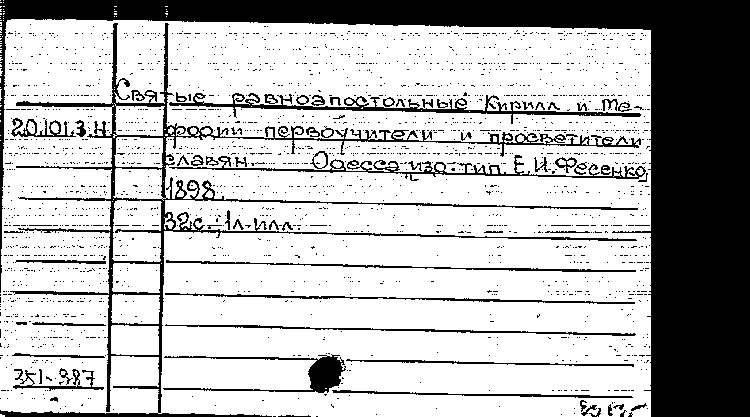 Святые равноапостольные Кирилл и Ме-
20.101.3.Н. фодии первоучители и просветители
славян. Одесса, изд. тип. Е.И.Фесенко,
1898.
32с.; 1л. илл.
351-987